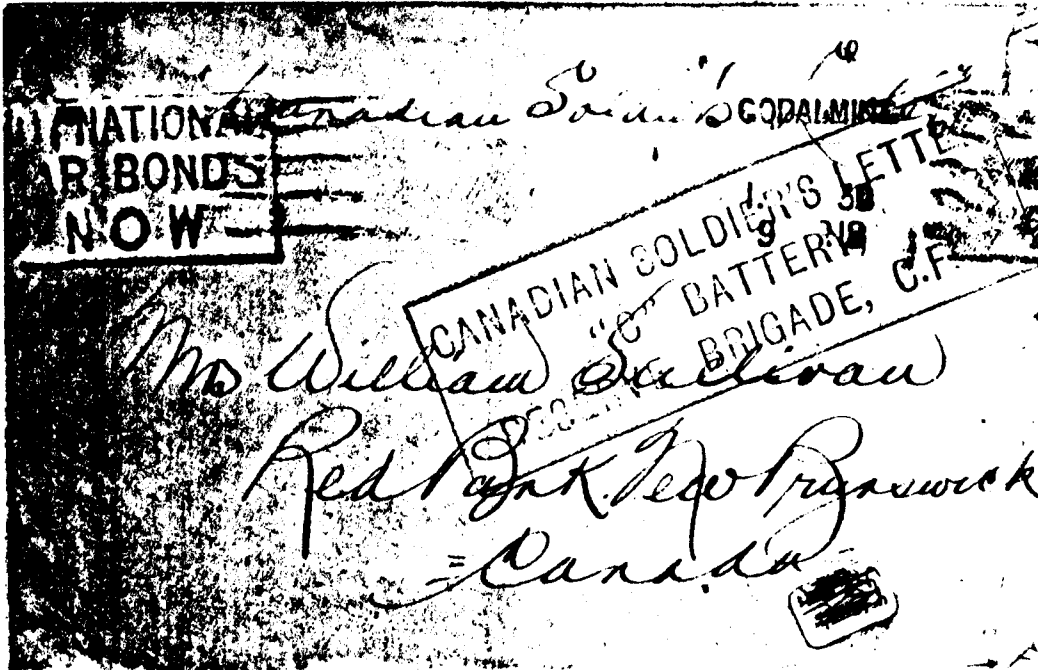 Canadian Soldier's
NATIONAL
WAR BONDS
NOW
GODALMING
CANADIAN SOLDIER'S LETTER
"C" BATTERY,
BRIGADE, C.F.
Mrs William Sullivan
Red Bank. New Brunswick
= Canada =